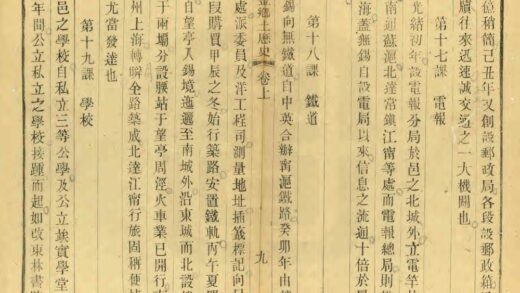 位稍簡己丑年又創設郵政局各段設郵政箱
牘往來迅速誠交通之一大機關也
第十七課　電報
光緒初年設電報分局於邑之北城外立電竿於
南通蘇滬北達常鎭江甯等處而電報總局則
海蓋無錫自設電局以來信息之流通十倍於
鄕土歷史　卷上　九
第十八課　鐵道
錫向無鐵道自中英合辦甯滬鐵路癸卯年由
處派委員及洋工程司測量地址插籤標記向
段購買甲辰之冬始行築路安置鐵軌丙午夏
於兩塲分設腰站于望亭周涇火車業已開行
自望亭入錫境迤邐至南城外沿東城而北設
州上海轉瞬全路築成北達江甯行旅固稱便
尤當發達也
第十九課　學校
邑之學校自私立三等公學及公立竢實學堂
年間公立私立之學校接踵而起如改東林書